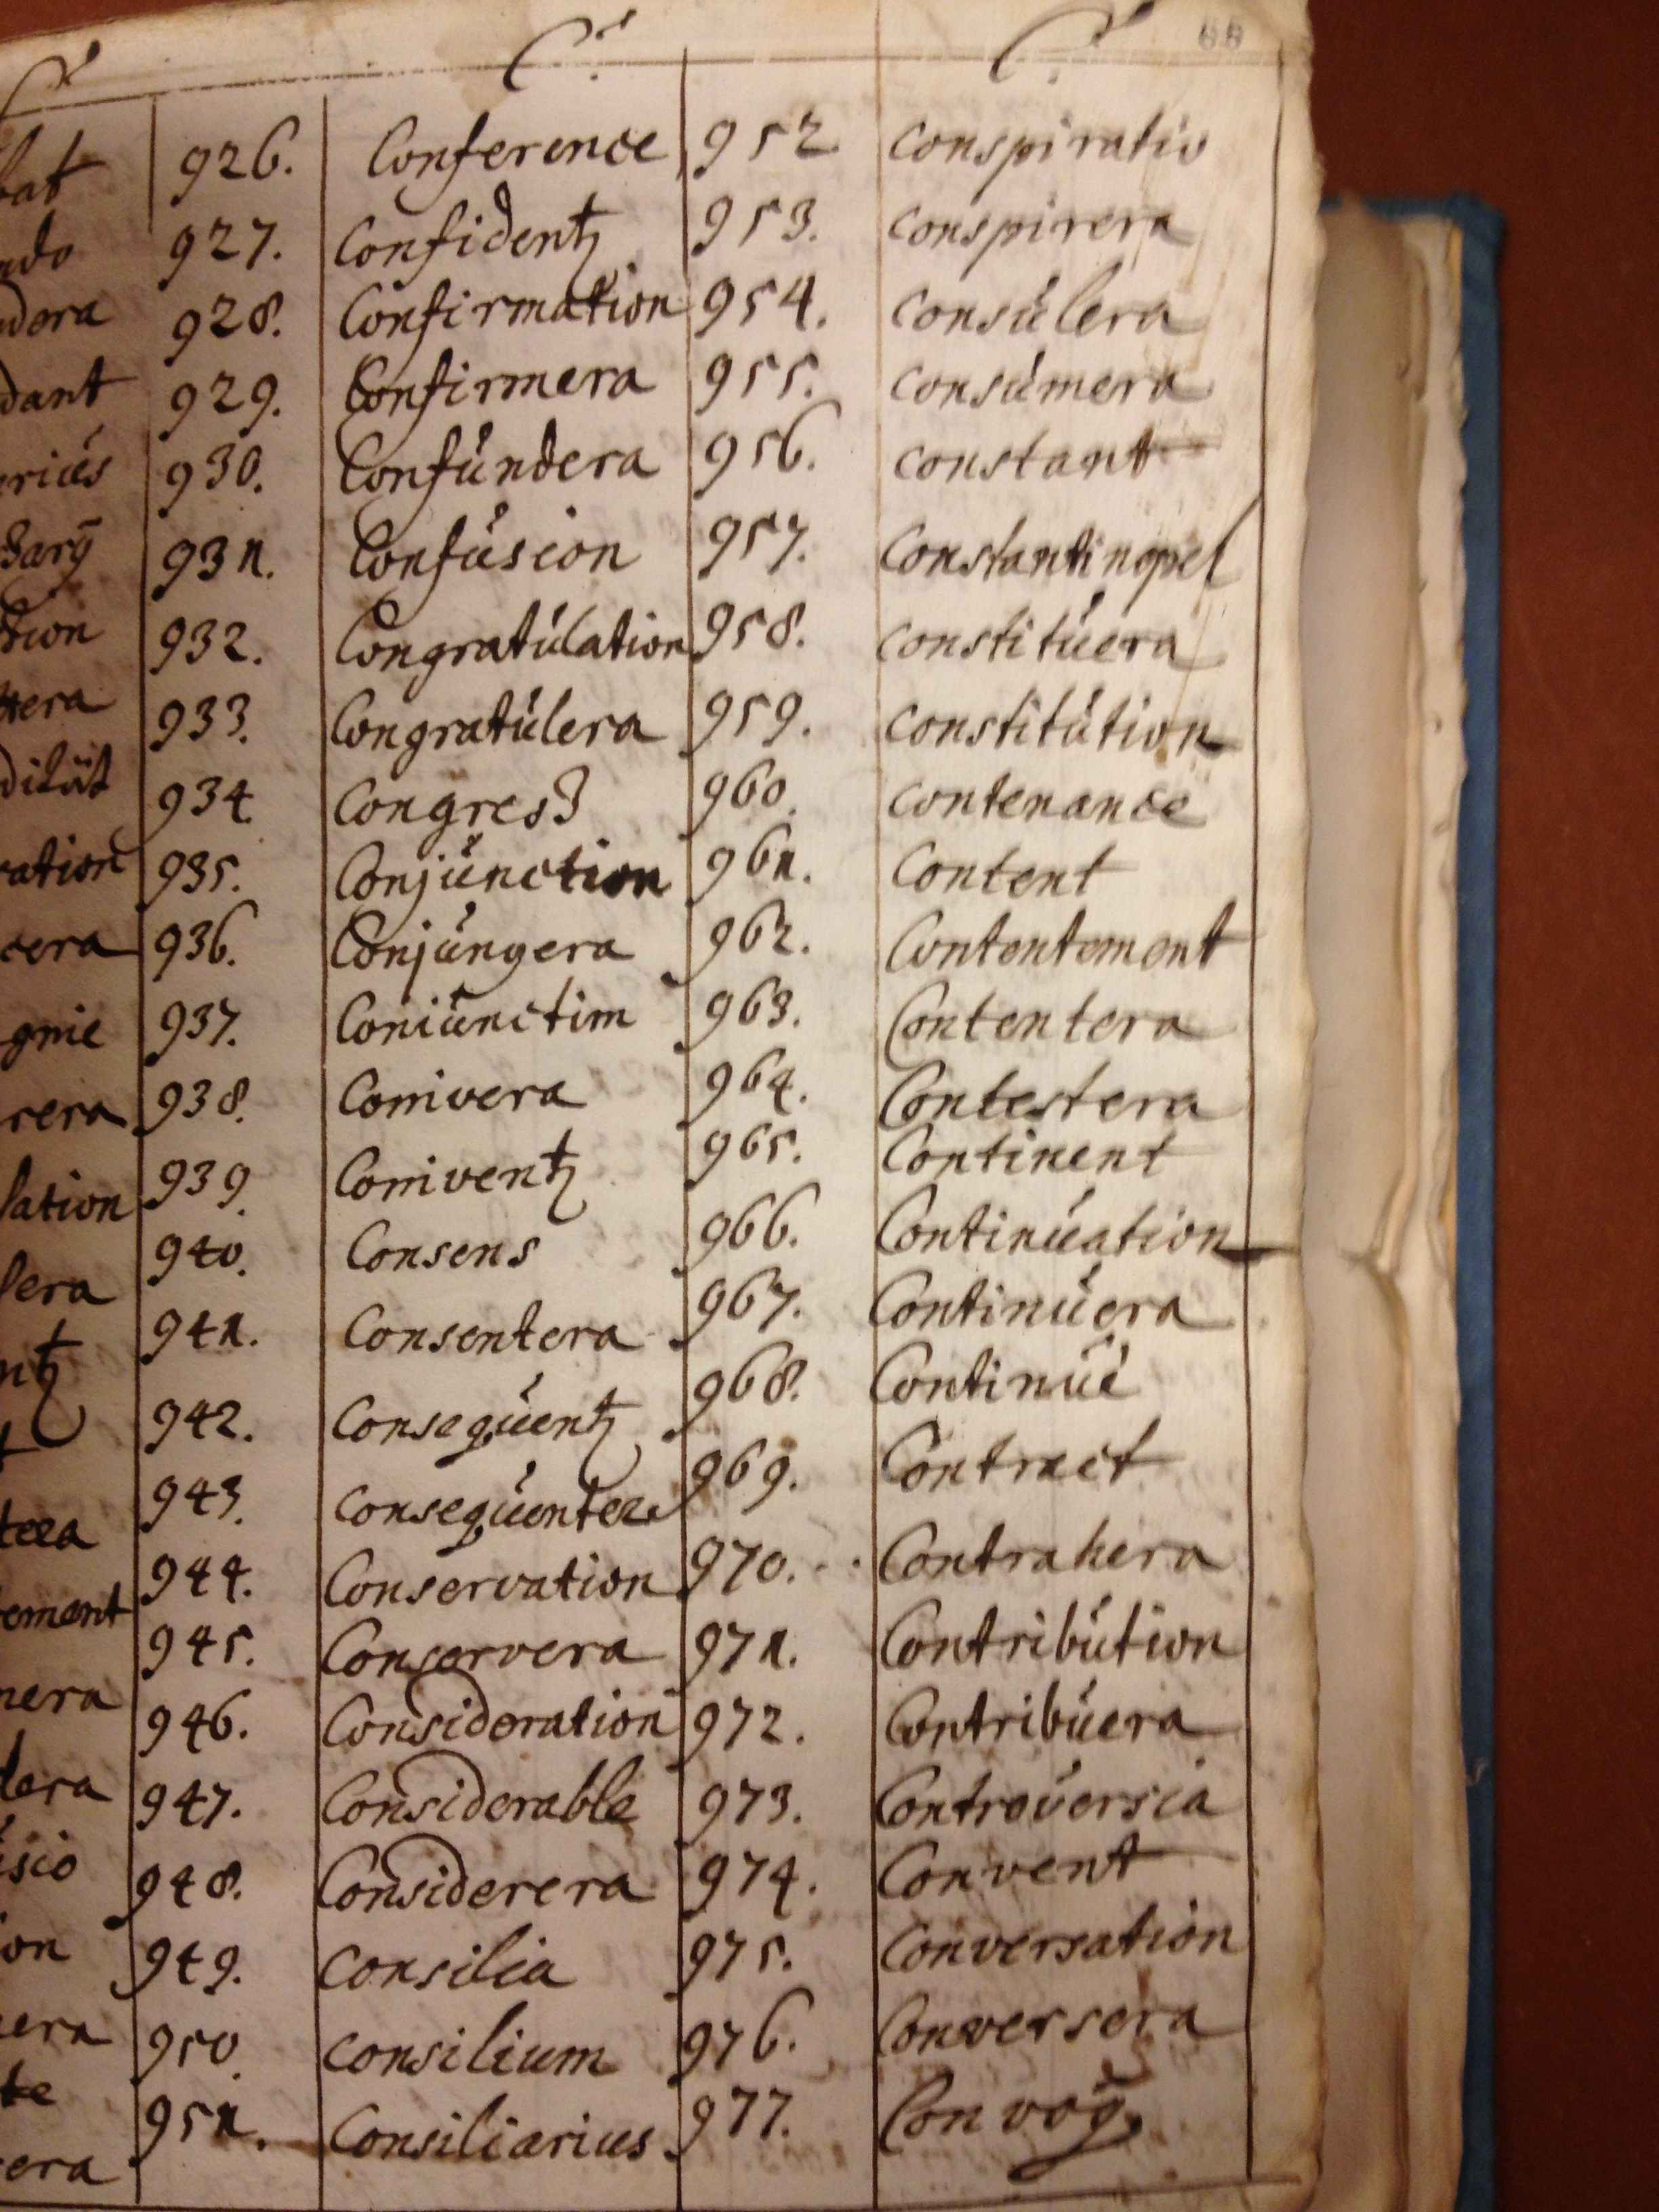 C. C. C. 88
bat 926. Conference 952 conspiratio
ndo 927. Confidentz 953. conspirera
dera 928. Confirmation 954. consúlera
dant 929. Confirmera 955. consúmera
riús 930. Confúndera 956. constant
931. Confúsion 957. Constantinopel
tion 932. Congratúlation 958. constitúera
tera 933. Congratúlera 959. constitútion
934. Congress 960. contenance
ration 935. Conjúnction 961. Content
cera 936. Conjúngera 962. Contentement
gnie 937. Coniúnctim 963. Contentera
rera 938. Conivera 964. Contestera
lation 939. Coniventz 965. Continent
lera 940. Consens 966. Continúation
ntz 941. Consentera 967. Continúera
t 942. Conseqúentz 968. Continúé
tera 943. conseqúenter 969. Contract
ement 944. Conservation 970. Contrahera
nera 945. Conservera 971. Contribútion
dera 946. Consideration 972. Contribúera
sio 947. Considerable 973. Controversia
on 948. Considerera 974. Convent
era 949. consilia 975. Conversation
te 950. consilium 976. Conversera
era 951. Consiliarius 977. Convoÿ